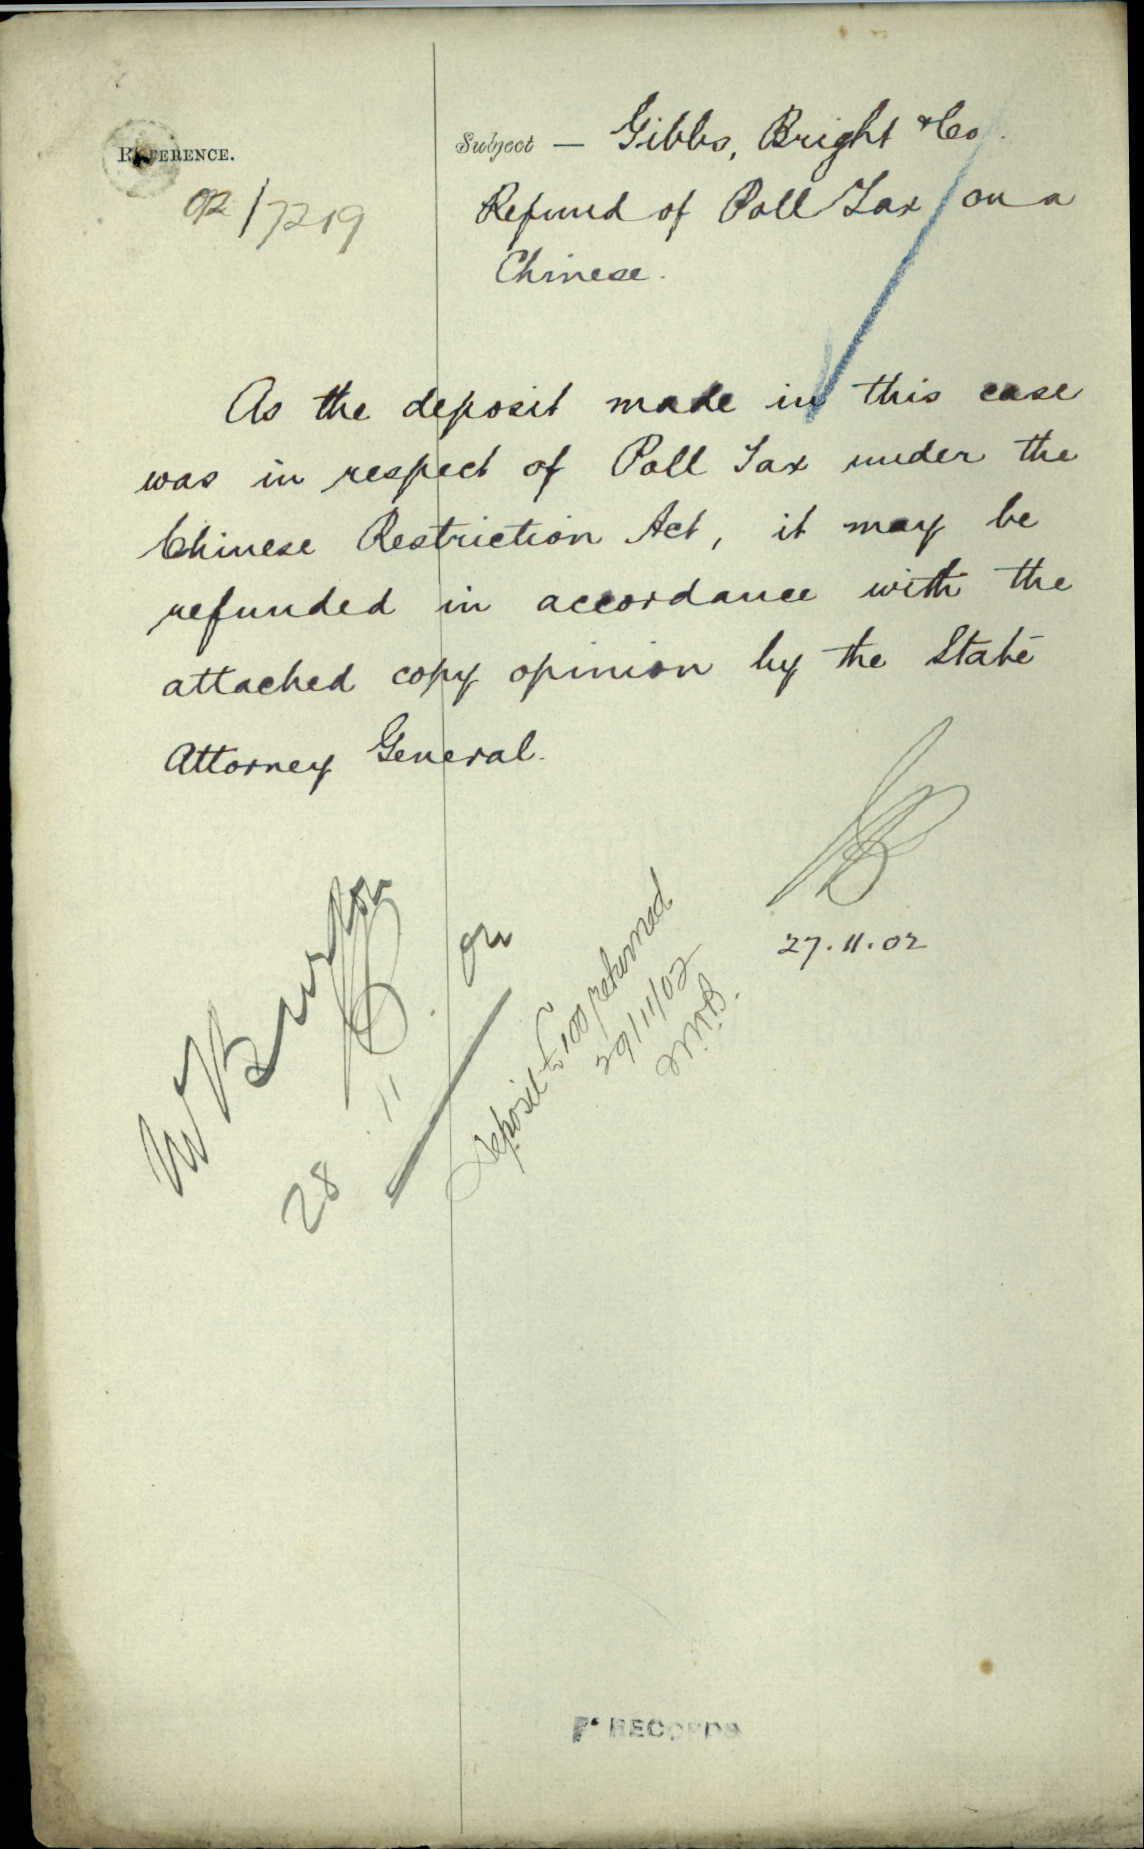 REFERENCE.
02/7219
Subject — Gibbs, Bright & Co.
Refund of Poll Tax on a
Chinese.
As the deposit made in this case
was in respect of Poll Tax under the
Chinese Restriction Act, it may be
refunded in accordance with the
attached copy opinion by the State
Attorney General.
27.11.02
28.11.02
Deposit £100 returned
29/11/02
RECORDS